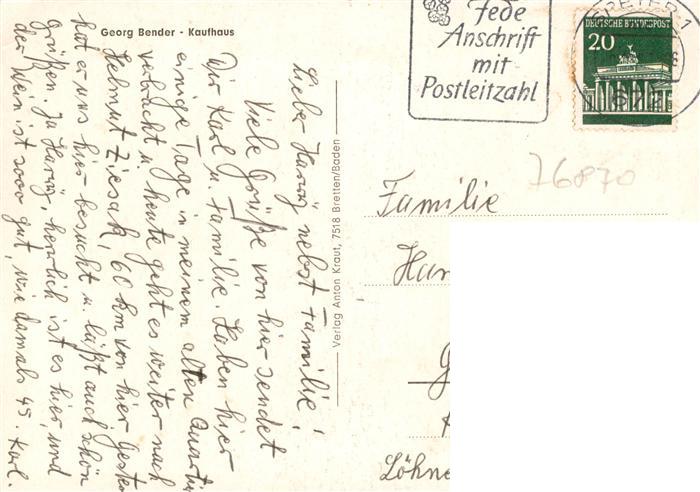 Georg Bender - Kaufhaus
Lieber Harry nebst Familie!
Viele Grüße von hier sendet
Dir Karl u. Familie. Haben hier
einige Tage in meinem alten Quarti
verbracht u. heute geht es weiter nach
Helmut Ziesak, 60 km von hier. Gestern
hat er uns hier besucht u. läßt auch schön
grüßen. Ja Harry, herrlich ist es hier, und
der Wein ist sooo gut, wie damals 45. Karl.
Verlag Anton Kraut, 7518 Bretten/Baden
Jede
Anschrift
mit
Postleitzahl
SPEYER 1
DEUTSCHE BUNDESPOST
20
76870
Familie
Har
Löhne